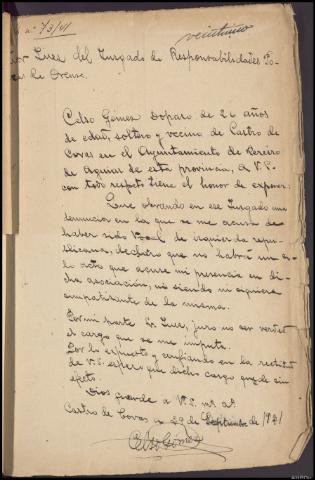 nº 73/41
veintiuno
Juez del Juzgado de Responsabilidades Po-
de Orense.
Celso Gómez de 26 años
de edad, soltero y vecino de Castro de
Covas en el Ayuntamiento de Pereiro
de Aguiar de esta provincia, a V.S.
con todo respeto tiene el honor de exponer:
Que obrando en ese Juzgado una
denuncia en la que se me acusa de
haber sido Vocal de izquierda repu-
blicana, declaro que no habrá un so-
lo acto que acuse mi presencia en di-
cha asociación, no siendo ni siquiera
simpatizante de la misma.
Por mi parte Sr Juez, juro no ser verdad
el cargo que se me imputa.
Por lo expuesto y confiando en la rectitud
de V.S. espero que dicho cargo quede sin
efecto.
Dios guarde a V.S. ms. as.
Castro de Covas a 29 de Septiembre de 1941
Celso Gómez